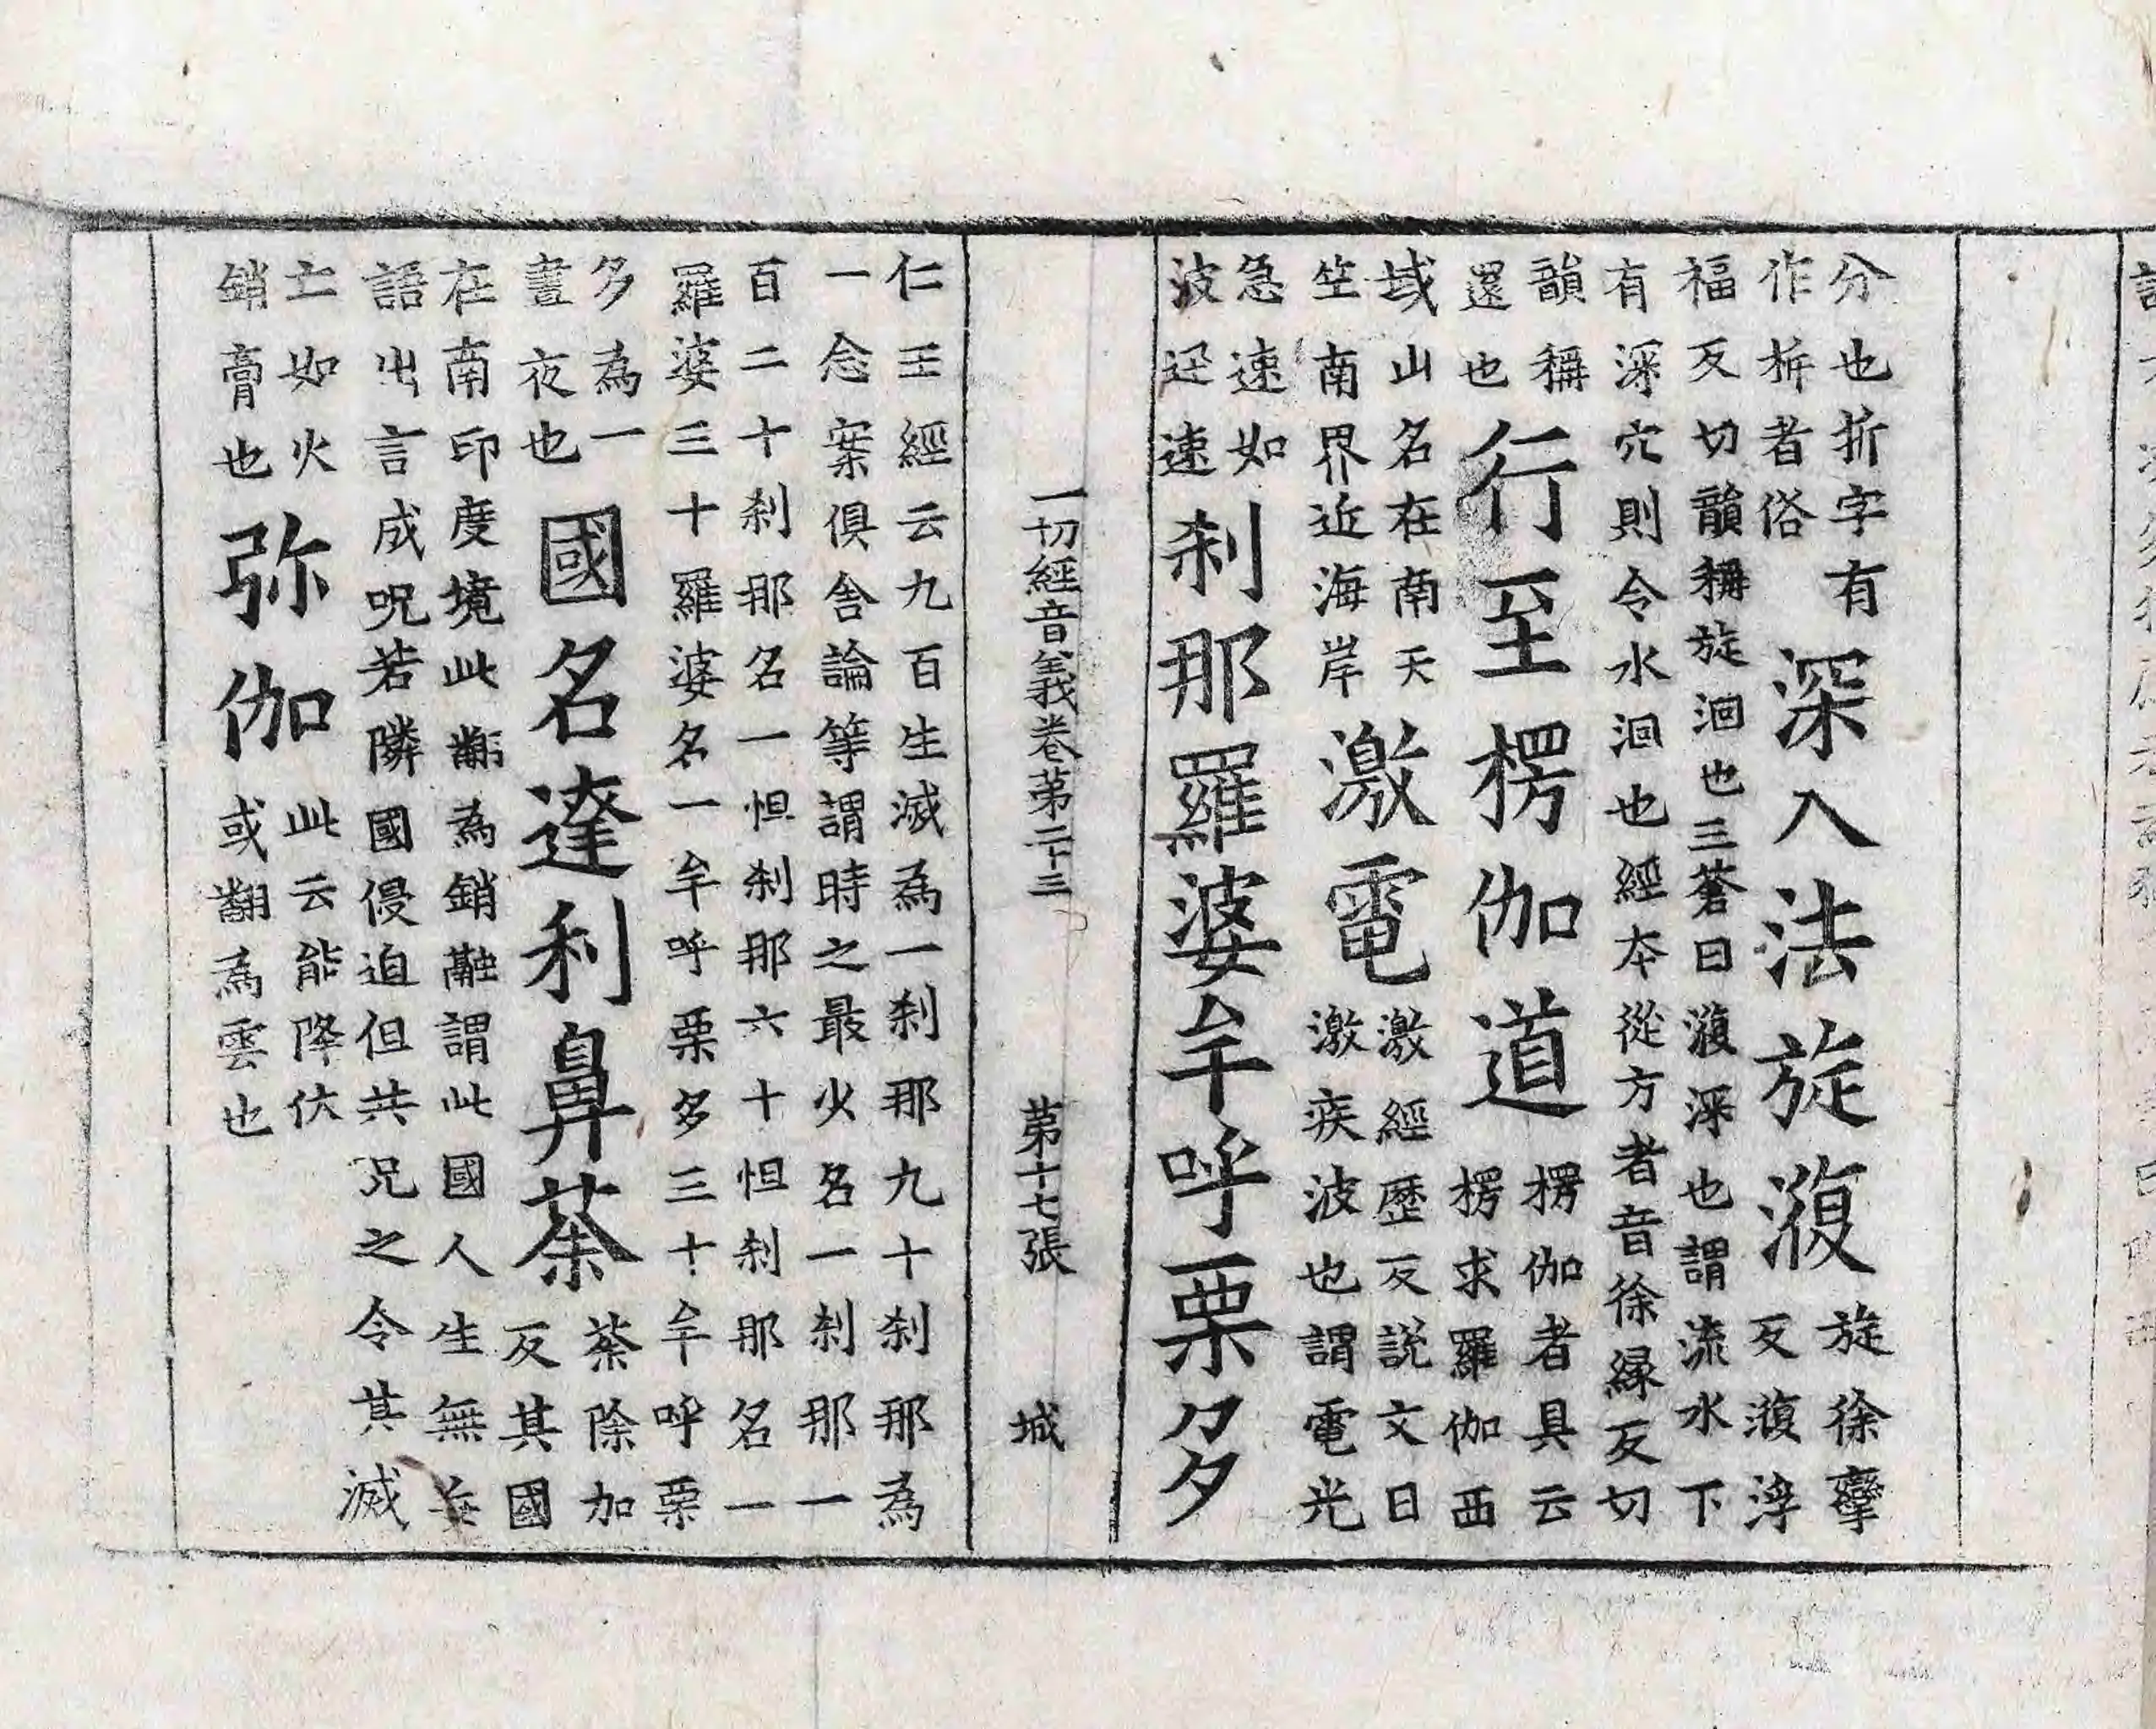 分也折字有
作㭊者俗
深入法旋澓
旋徐孿
反澓浮
福反切韻稱旋洄也三蒼曰澓深也謂流水下
有深穴則令水洄也經本從方者音徐緣反切
韻稱
還也
行至楞伽道
楞伽者具云
楞求羅伽西
域山名在南天
竺南界近海岸
激電
激經歷反說文曰
激疾波也謂電光
急速如
波迅速
刹那羅婆牟呼栗多
一切經音義卷第二十三 第十七張 城
仁王經云九百生滅為一刹那九十刹那為
一念案俱舍論等謂時之最少名一刹那一
百二十刹那名一怛刹那六十怛刹那名一
羅婆三十羅婆名一牟呼栗多三十牟呼栗
多為一
晝夜也
國名達利鼻荼
荼除加
反其國
在南印度境此翻為銷融謂此國人生無妄
語出言成呪若隣國侵迫但共咒之令其滅
亡如火
銷膏也
弥伽
此云能降伏
或翻為雲也